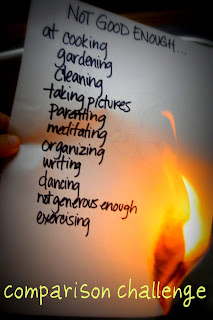 NOT GOOD ENOUGH...
at cooking
gardening
cleaning
taking pictures
parenting
meditating
organizing
writing
dancing
not generous enough
exercising
comparison challenge